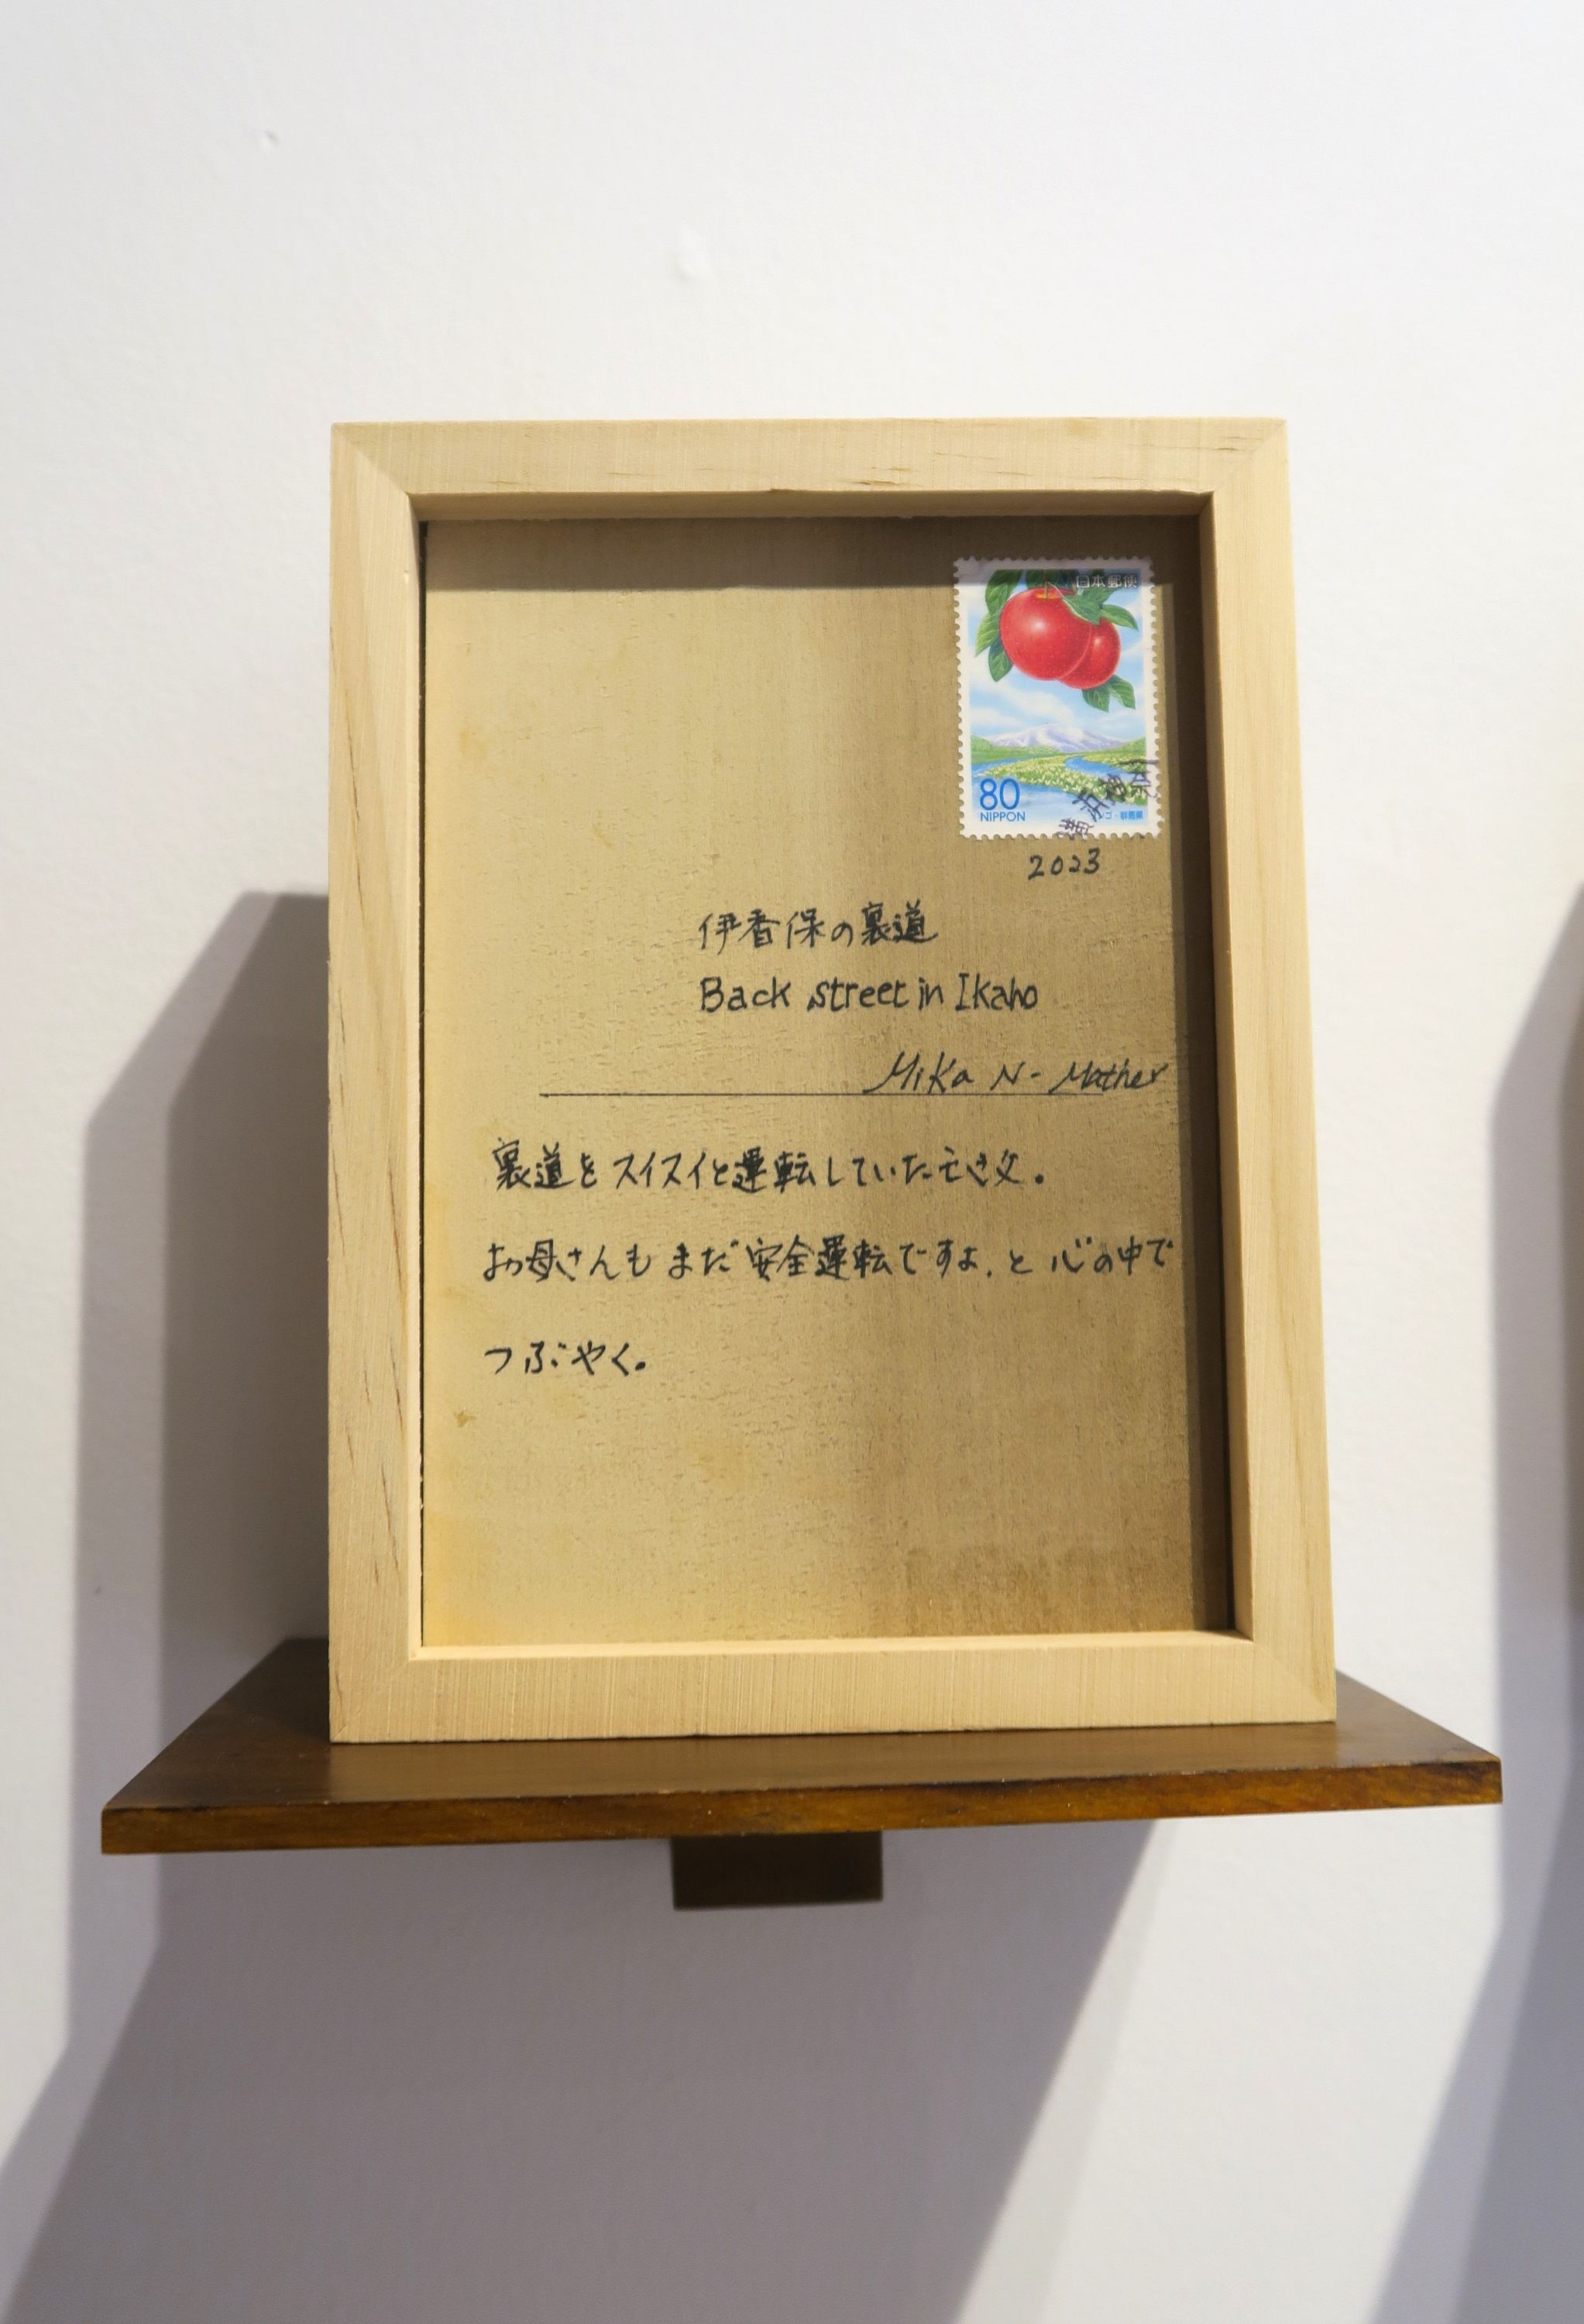 日本郵便
80
NIPPON
2023
伊香保の裏道
Back street in Ikaho
Mika N- Mather
裏道をスイスイと運転していた亡き父。
お母さんもまだ安全運転ですよ、と心の中で
つぶやく。